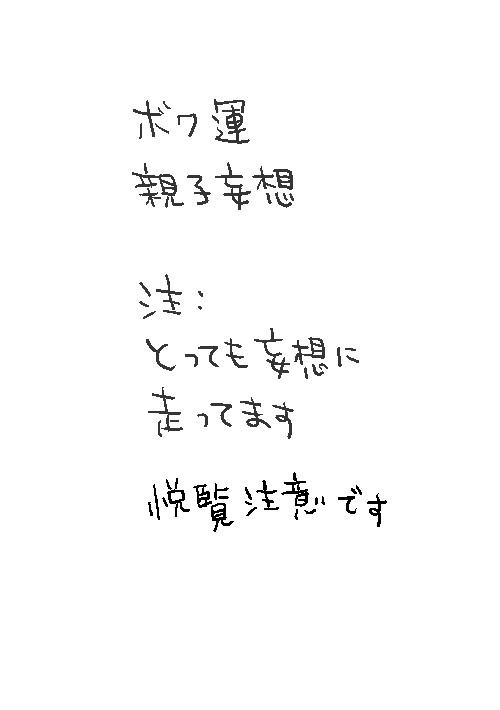 ボク運
親子妄想
注:
とっても妄想に
走ってます
悦覧注意です